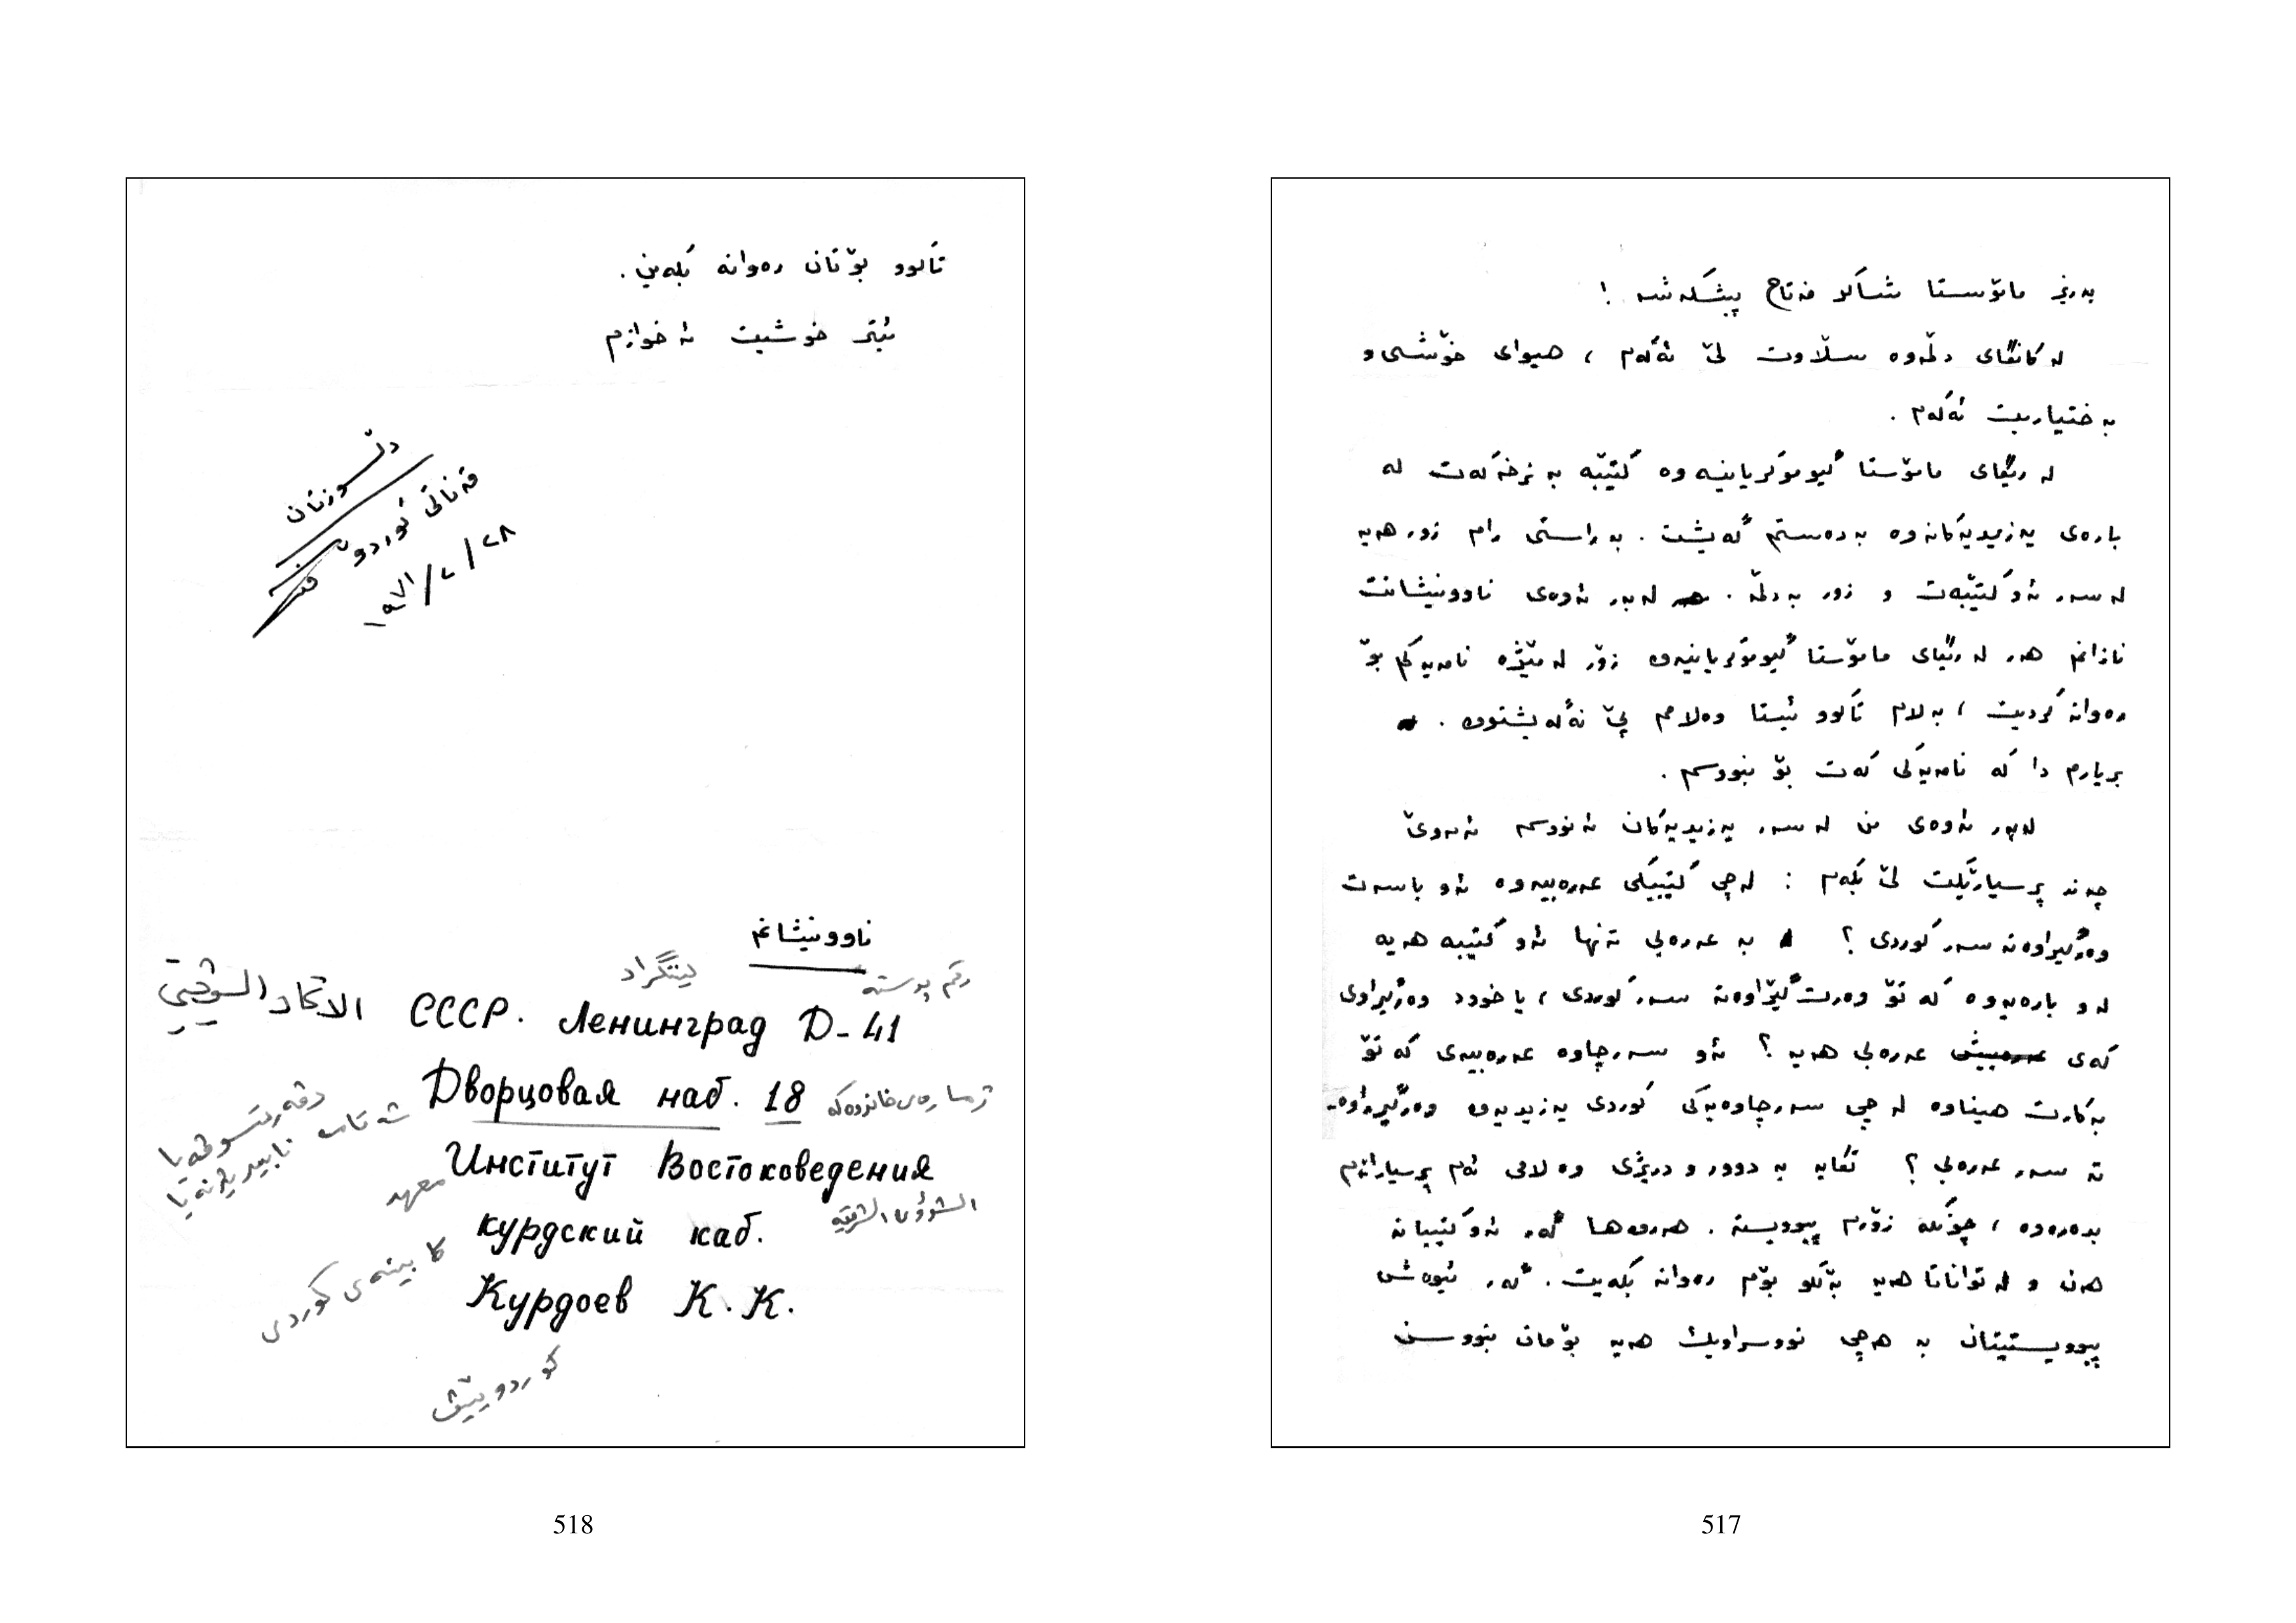 بەڕێز مامۆستا شاکر فەتاح پێشکەشە !
لە کانگای دڵمەوە سڵاوت لێ ئەکەم ، هیوای خۆشی و
بەختیاریت ئەکەم .
لە ڕێگای مامۆستا گیو موکریانیەوە کتێبە بەنرخەکەت لە
بارەی یەزیدیەکانەوە بەدەستم گەیشت . بەڕاستی رام زور هەیە
لە سەر ئەو کتێبەت و زور بەدڵە . لەبەر ئەوەی ناوونیشانت
نازانم هەر لە ڕێگای مامۆستا گیو موکریانیەوە زۆر لە مێژە نامەیەکم بۆ
رەوانە کردیت ، بەلام تاکوو ئیستا وەلامم پێ نەگەیشتووە .
بریارم دا کە نامەیەکی کەت بۆ بنووسم .
لەبەر ئەوەی من لە سەر یەزیدیەکان ئەنووسم ئەمەوێ
چەند پرسیارێکت لێ بکەم : لە چی کتێبیکی عەرەبیەوە ئەو باسەت
وەرگیراوەتە سەر کوردی ؟ بە عەرەبی تەنها ئەو کتێبە هەیە
لەو بارەیەوە کە تۆ وەرت گێراوەتە سەر کوردی ، یا خوود وەرگیراوی
کەی عەرەبی هەیە ؟ ئەو سەرچاوە عەرەبیەی کە تۆ
بەکارت هیناوە لە چی سەرچاوەیەکی کوردی یەزیدیەوە وەرگیراوە
تە سەر عەرەبی ؟ تکایە بە دوور و دریژی وەلامی ئەم پرسیارانەم
بدەرەوە ، چونکە زۆرم پیویستە . هەروەها گەر ئەو کتیبانە
هەن و لە تواناتا هەیە بەڵکو بۆم رەوانە بکەیت . گەر ئیوەش
پیویستیتان بە هەچی نووسراویک هەیە بۆمان بنووسن
517
تاکوو بۆتان رەوانە بکەین .
ئیتر خوشیت ئەخوازم
دڵسوزتان
قەناتێ کوردۆ
١٩٧١/٧/٢٨
ناوونیشانم
رقم پوستە لینینگراد
СССР. Ленинград Д-41 الاتحاد السوڤیتي
Дворцовая наб. 18 ژمارەی خانووەکە
Институт Востоковедения
معهد الشؤون الشرقیە
курдский каб.
کابینەی کوردی
Курдоев К. К.
کوردوییڤ
518